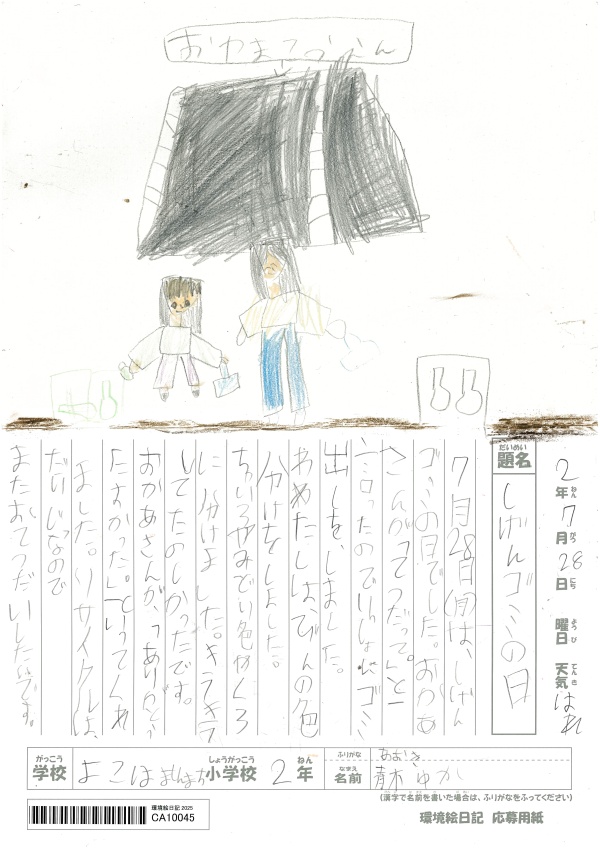 おやまてつだいん
2年7月28日 曜日 天気 はれ
ねん がつ にち ようび てんき
だいめい
題名 しげんゴミの日
7月28日(月)は、しげん
ゴミの日でした。おかあ
さんが「てつだって。」と
言ったのでいっしょにゴミ
出しを、しました。
わたしは、びんの色
分けをしました。
ちゃいろやみどり色やくろ
に分けました。キラキラ
してたのしかったです。
おかあさんが、「ありがとう
たすかった。」といってくれ
ました。リサイクルは、
だいじなので
またおてつだいしたいです。
がっこう
学校
しょうがっこう
小学校 2年
ねん
ふりがな あおき
なまえ
名前 青木 ゆか
(漢字で名前を書いた場合は、ふりがなをふってください)
環境絵日記 2025
CA10045
環境絵日記 応募用紙